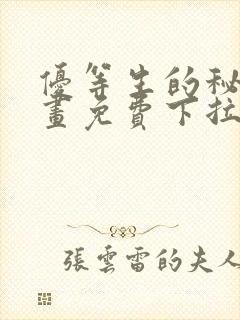 優等生的秘
畫免費下拉
張雲雷的夫人